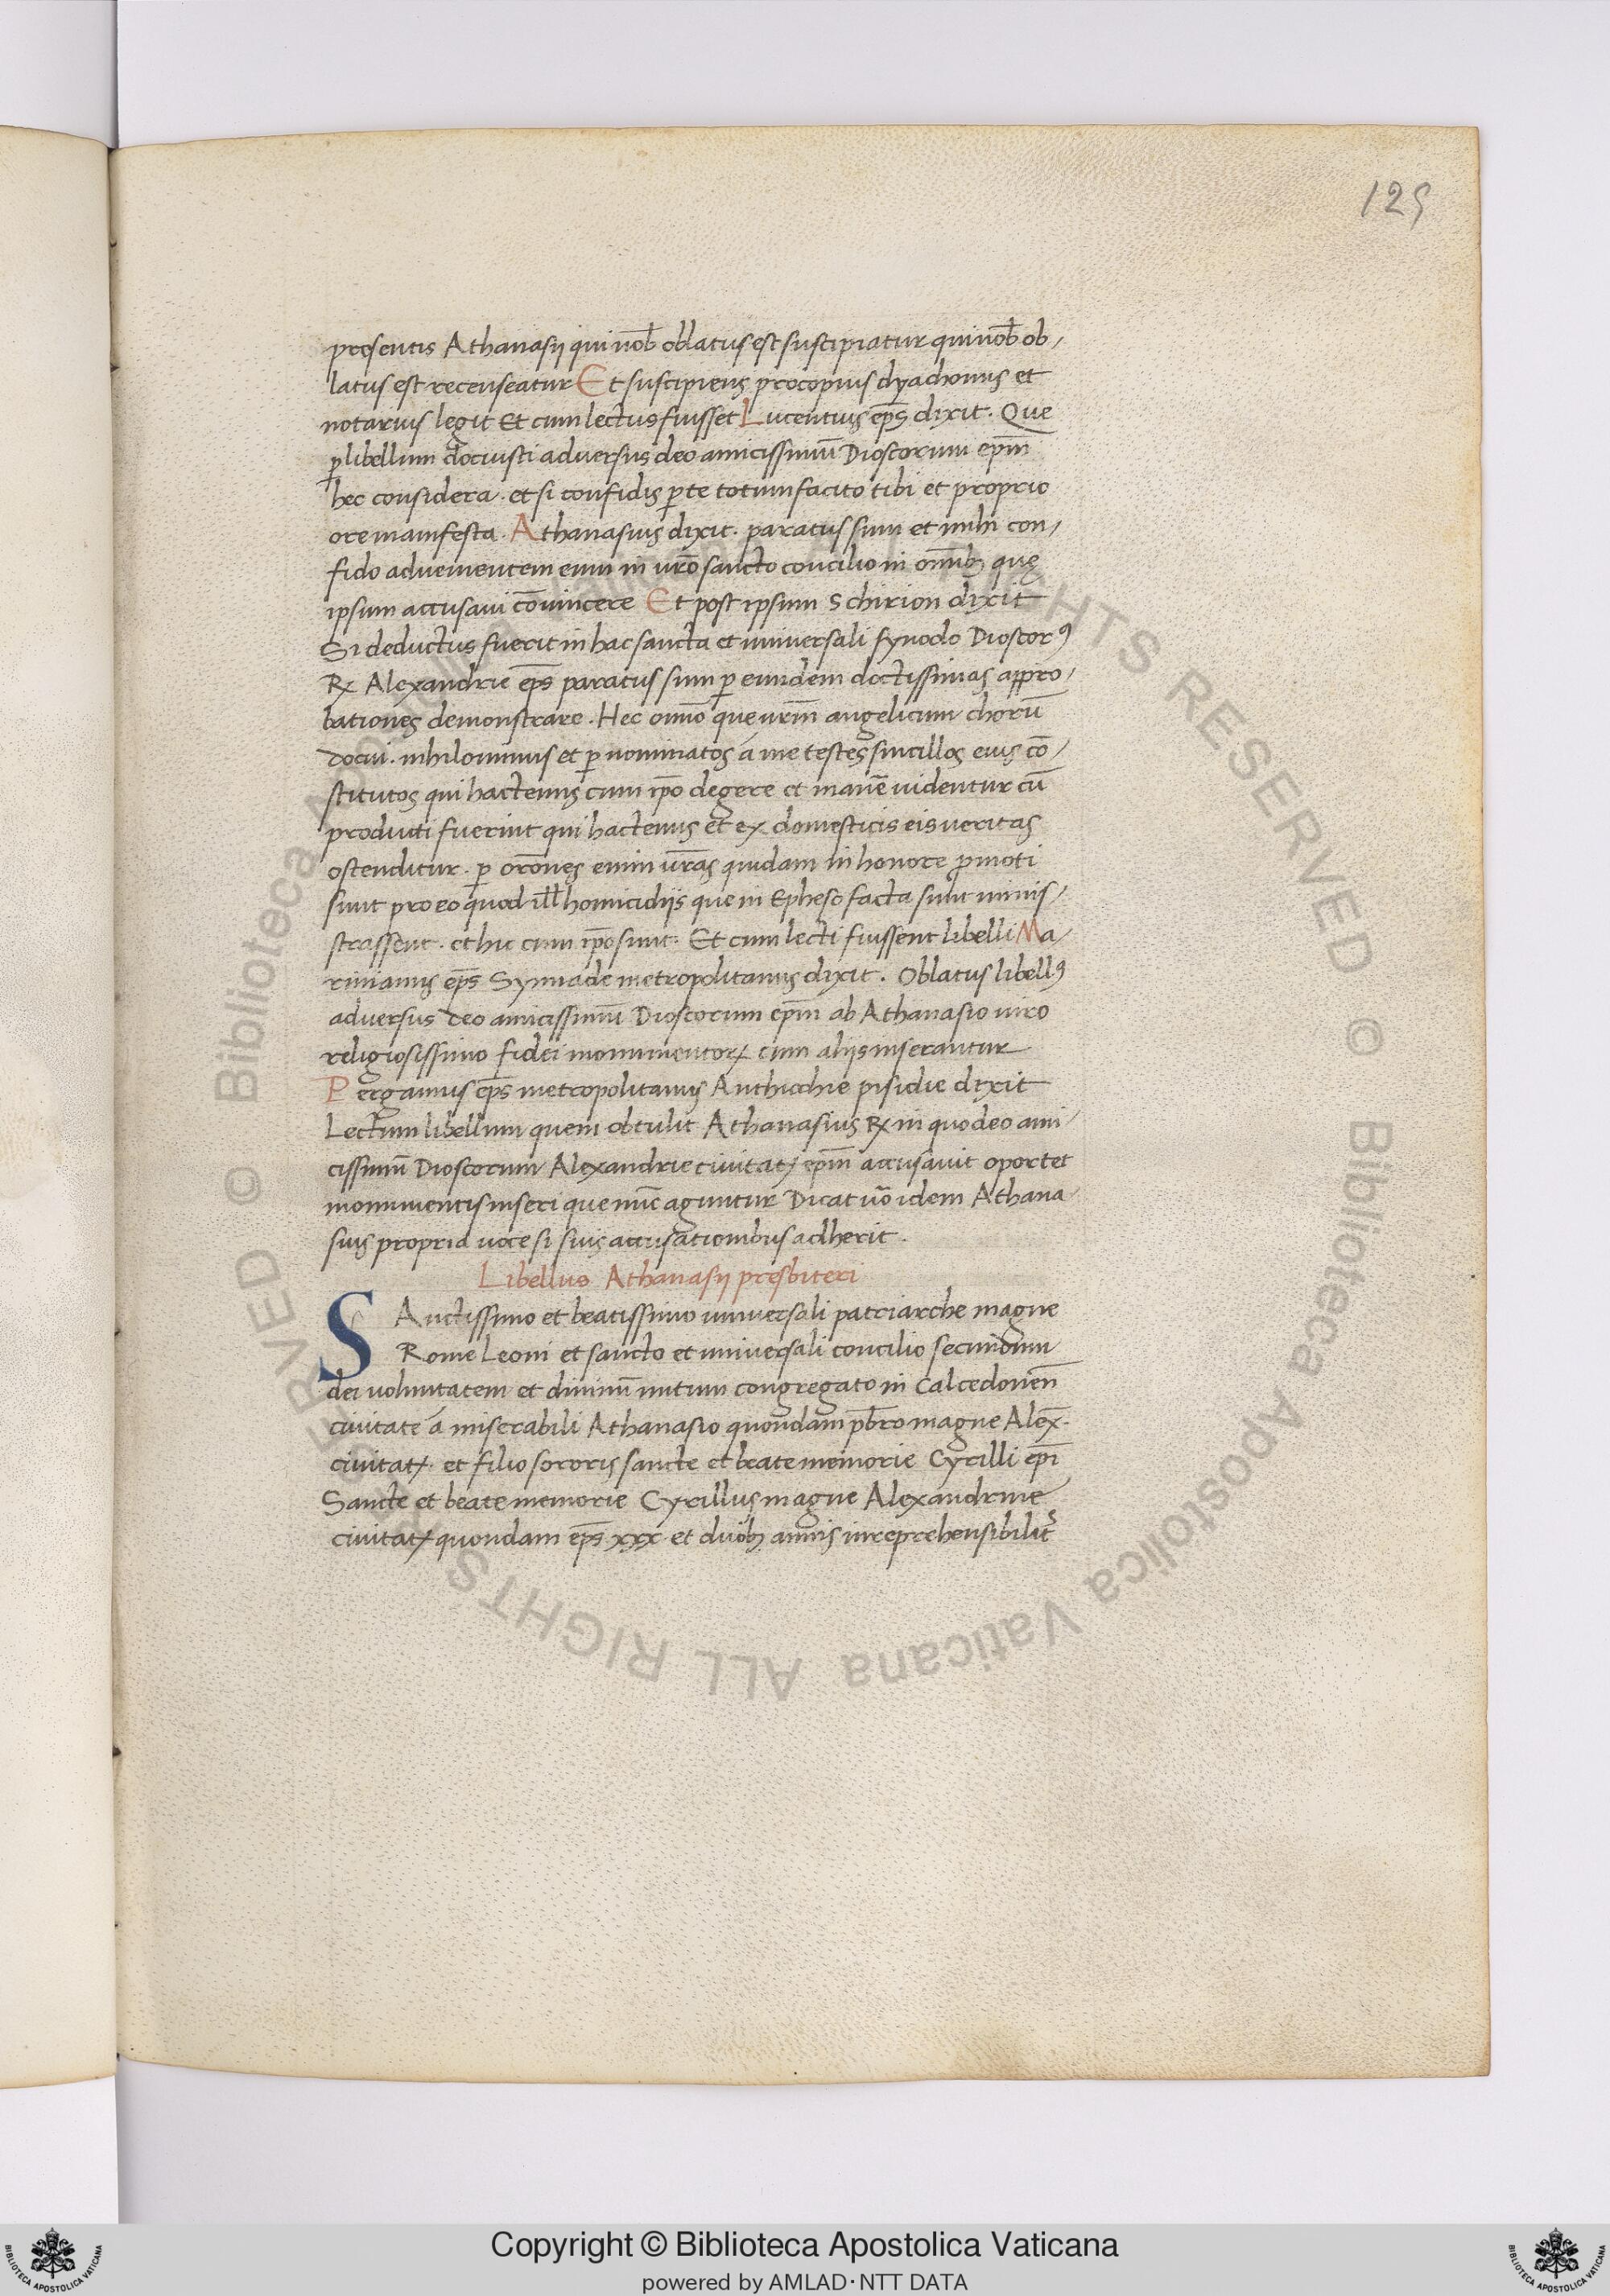 125
presentis Athanasij qui nob̄ oblatus est suscipiatur qui nob̄ ob,
latus est recenseatur Et suscipiens procopius dyachonus et
notarius legit Et cum lectus fuisset Lucentius ep̄s dixit. Que
ꝑ libellum docuisti adversus deo amicissimū Dioscorum ep̄m
hec considera. et si confidis ꝑ te totum facito tibi et proprio
ore manifesta. Athanasius dixit. paratus sum et mihi con,
fido advenientem eum in vr̄o sancto concilio in om̄ibꝫ que
ipsum accusavi cōvincere Et post ipsum Schirion dixit
Si deductus fuerit in hac sancta et universali synodo Dioscorꝰ
Rx Alexandrie ep̄s paratus sum ꝑ eundem doctissimas appro,
bationes demonstrare. Hec om̄o que vr̄m angelicum chorū
docui. nihilominus et ꝑ nominatos a me testes sincillos eius cō,
stitutos qui hactenus cum ip̄o degere et manē videntur cū
producti fuerint qui hactenus et ex domesticis eis veritas
ostenditur. ꝑ or̄ones enim vr̄as quidam in honore promoti
sunt pro eo quod ill̄ homicidijs que in Epheso facta sunt minis,
strassent. et hic cum ip̄o sunt. Et cum lecti fuissent libelli Ma,
rinianus ep̄s Synnade metropolitanus dixit. Oblatus libellꝰ
adversus deo amicissimū Dioscorum ep̄m ab Athanasio viro
religiosissimo fidei monumentoꝝ cum alijs inserantur
Pergamus ep̄s metropolitanus Anthiochie pisidie dixit
Lectum libellum quem obtulit Athanasius Rx in quo deo ami,
cissimū Dioscorum Alexandrie civitatꝭ ep̄m accusavit oportet
monumentis inseri que nūc aguntur Dicat v̄o idem Athana,
sius propria voce si suis accusationibus adherit.
Libellus Athanasij presbiteri
SAnctissimo et beatissimo universali patriarche magne
Rome Leoni et sancto et universali concilio secundum
dei voluntatem et divinū nutum congregato in Calcedonen̄
civitate a miserabili Athanasio quondam pb̄ro magne Alex̄.
civitatꝭ. et filio sororis sancte et beate memorie Cyrilli ep̄i
Sancte et beate memorie Cyrillus magne Alexandrine
civitatꝭ quondam ep̄s xxx et duobꝫ annis inreprehensibilit̄
© Biblioteca Apostolica Vaticana ALL RIGHTS RESERVED
Copyright © Biblioteca Apostolica Vaticana
powered by AMLAD・NTT DATA